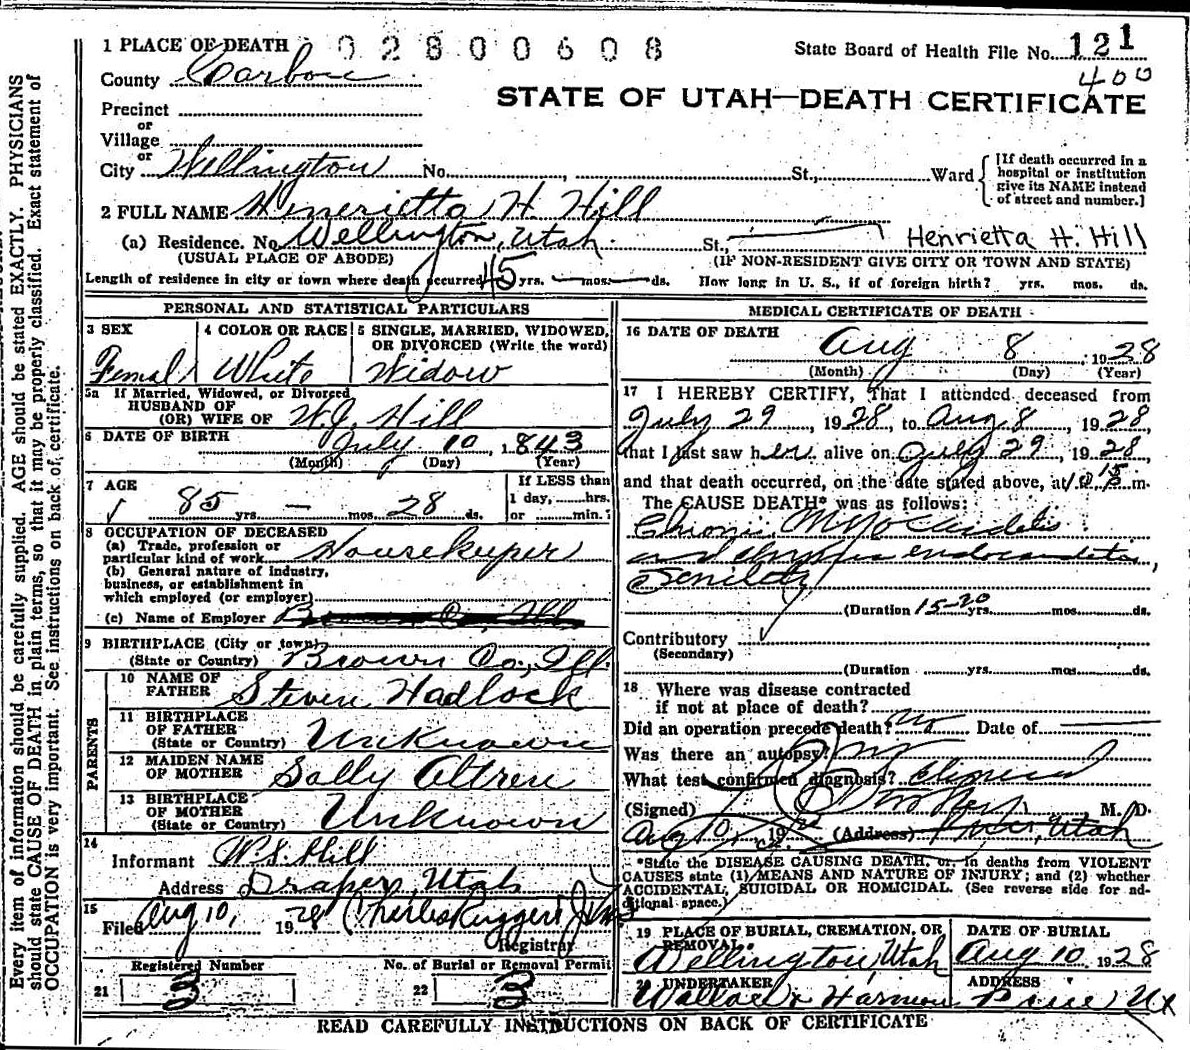 1 PLACE OF DEATH 02800608
State Board of Health File No. 121
400
County Carbon
STATE OF UTAH—DEATH CERTIFICATE
Precinct
or
Village
or
City Wellington No. , St., Ward
[If death occurred in a hospital or institution give its NAME instead of street and number.]
2 FULL NAME Henrietta H. Hill
(a) Residence. No. Wellington, Utah. St., Henrietta H. Hill
(USUAL PLACE OF ABODE) (IF NON-RESIDENT GIVE CITY OR TOWN AND STATE)
Length of residence in city or town where death occurred 45 yrs. — mos. — ds. How long in U. S., if of foreign birth? yrs. mos. ds.
PERSONAL AND STATISTICAL PARTICULARS
3 SEX
Female
4 COLOR OR RACE
White
5 SINGLE, MARRIED, WIDOWED, OR DIVORCED (Write the word)
Widow
5a If Married, Widowed, or Divorced
HUSBAND OF
(OR) WIFE OF W.J. Hill
6 DATE OF BIRTH July 10, 1843
(Month) (Day) (Year)
7 AGE
85 yrs. — mos. 28 ds.
If LESS than
1 day, hrs.
or min.?
8 OCCUPATION OF DECEASED
(a) Trade, profession or
particular kind of work Housekeeper
(b) General nature of industry,
business, or establishment in
which employed (or employer)
(c) Name of Employer
9 BIRTHPLACE (City or town)
(State or Country) Brown Co., Ill.
PARENTS
10 NAME OF
FATHER Steven Hadlock
11 BIRTHPLACE
OF FATHER
(State or Country) Unknown
12 MAIDEN NAME
OF MOTHER Sally Altren
13 BIRTHPLACE
OF MOTHER
(State or Country) Unknown
14
Informant W.S. Hill
Address Draper, Utah
15
Filed Aug 10, 1928 Charles Ruggeri
Registrar
Registered Number
21 3
No. of Burial or Removal Permit
22 3
MEDICAL CERTIFICATE OF DEATH
16 DATE OF DEATH
Aug 8 1928
(Month) (Day) (Year)
17 I HEREBY CERTIFY, That I attended deceased from
July 29, 1928, to Aug. 8, 1928,
that I last saw her alive on July 29, 1928,
and that death occurred, on the date stated above, at 10 15 m.
The CAUSE DEATH* was as follows:
Chronic Myocarditis
and chronic endocarditis,
Senility
(Duration 15-20 yrs. mos. ds.
Contributory
(Secondary)
(Duration yrs. mos. ds.
18 Where was disease contracted
if not at place of death?
Did an operation precede death? no Date of
Was there an autopsy? no
What test confirmed diagnosis? Clinical
(Signed) M. D.
Aug 10, 19 (Address) Price, Utah
*State the DISEASE CAUSING DEATH, or, in deaths from VIOLENT
CAUSES state (1) MEANS AND NATURE OF INJURY; and (2) whether
ACCIDENTAL, SUICIDAL OR HOMICIDAL. (See reverse side for additional space.)
19 PLACE OF BURIAL, CREMATION, OR REMOVAL
Wellington, Utah
DATE OF BURIAL
Aug 10 1928
20 UNDERTAKER
Wallace & Harmon
ADDRESS
Price, Ut
READ CAREFULLY INSTRUCTIONS ON BACK OF CERTIFICATE
Every item of information should be carefully supplied. AGE should be stated EXACTLY. PHYSICIANS
should state CAUSE OF DEATH in plain terms, so that it may be properly classified. Exact statement of
OCCUPATION is very important. See instructions on back of certificate.